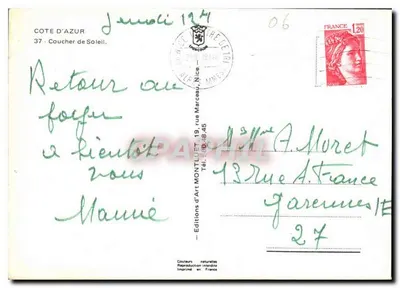 Jeudi 12 H
06
COTE D'AZUR
37 - Coucher de Soleil.
FRANCE
1,20
Retour au
foyer
à bientôt
vous
Mamie
- Editions d'Art MONTLUET, 19, rue Marceau, Nice -
M. Mme A. Moret
13 Rue A. France
Garennes/E
27
Couleurs naturelles
Reproduction interdite
Imprimé en France